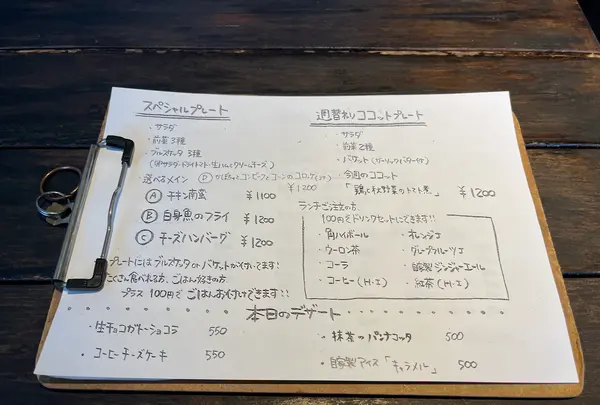 スペシャルプレート
・サラダ
・前菜 3種
・ブルスケッタ 3種
(卵サラダ・ドライトマト・生ハムとクリームチーズ)
・選べるメイン
Ⓓ かぼちゃとコンビーフとコーンのコロッケ
¥1200
Ⓐ チキン南蛮 ¥1100
Ⓑ 白身魚のフライ ¥1200
Ⓒ チーズハンバーグ ¥1200
プレートにはブルスケッタ or バケットが付いてます!
たくさん食べれる方、ごはん好きの方
プラス 100円で ごはんお付けできます!!
週替わりココットプレート
・サラダ
・前菜 2種
・バケット (ガーリックバター付)
・今週のココット
「鶏と秋野菜のトマト煮」 ¥1200
ランチご注文の方、
100円でドリンクセットにできます!!
・角ハイボール ・オレンジJ
・ウーロン茶 ・グレープフルーツJ
・コーラ ・自家製ジンジャーエール
・コーヒー (H・I) ・紅茶 (H・I)
本日のデザート
・生チョコガトーショコラ 550
・コーヒーチーズケーキ 550
・抹茶のパンナコッタ 500
・自家製アイス「キャラメル」 500